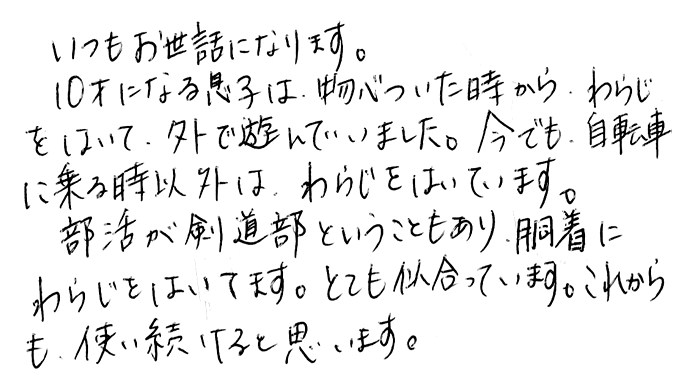 いつもお世話になります。
10才になる息子は、物心ついた時から、わらじ
をはいて、外で遊んでいました。今でも、自転車
に乗る時以外は、わらじをはいています。
部活が剣道部ということもあり、胴着に
わらじをはいてます。とても似合っています。これから
も、使い続けると思います。